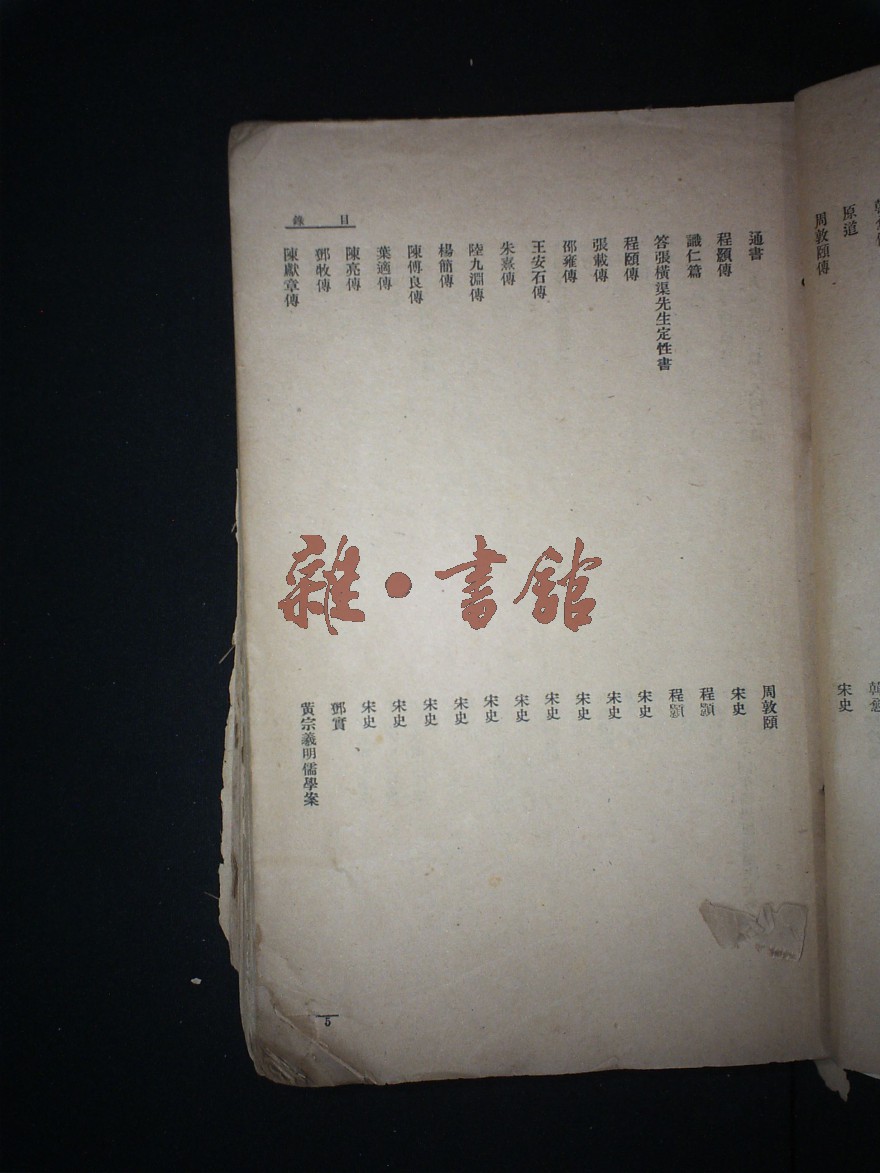 原道 韓愈
周敦頤傳 宋史
目錄
通書 周敦頤
程顥傳 宋史
識仁篇 程顥
答張橫渠先生定性書 程顥
程頤傳 宋史
張載傳 宋史
邵雍傳 宋史
王安石傳 宋史
朱熹傳 宋史
陸九淵傳 宋史
楊簡傳 宋史
陳傅良傳 宋史
葉適傳 宋史
陳亮傳 宋史
鄧牧傳 鄧實
陳獻章傳 黃宗羲明儒學案
5
雜·書舘